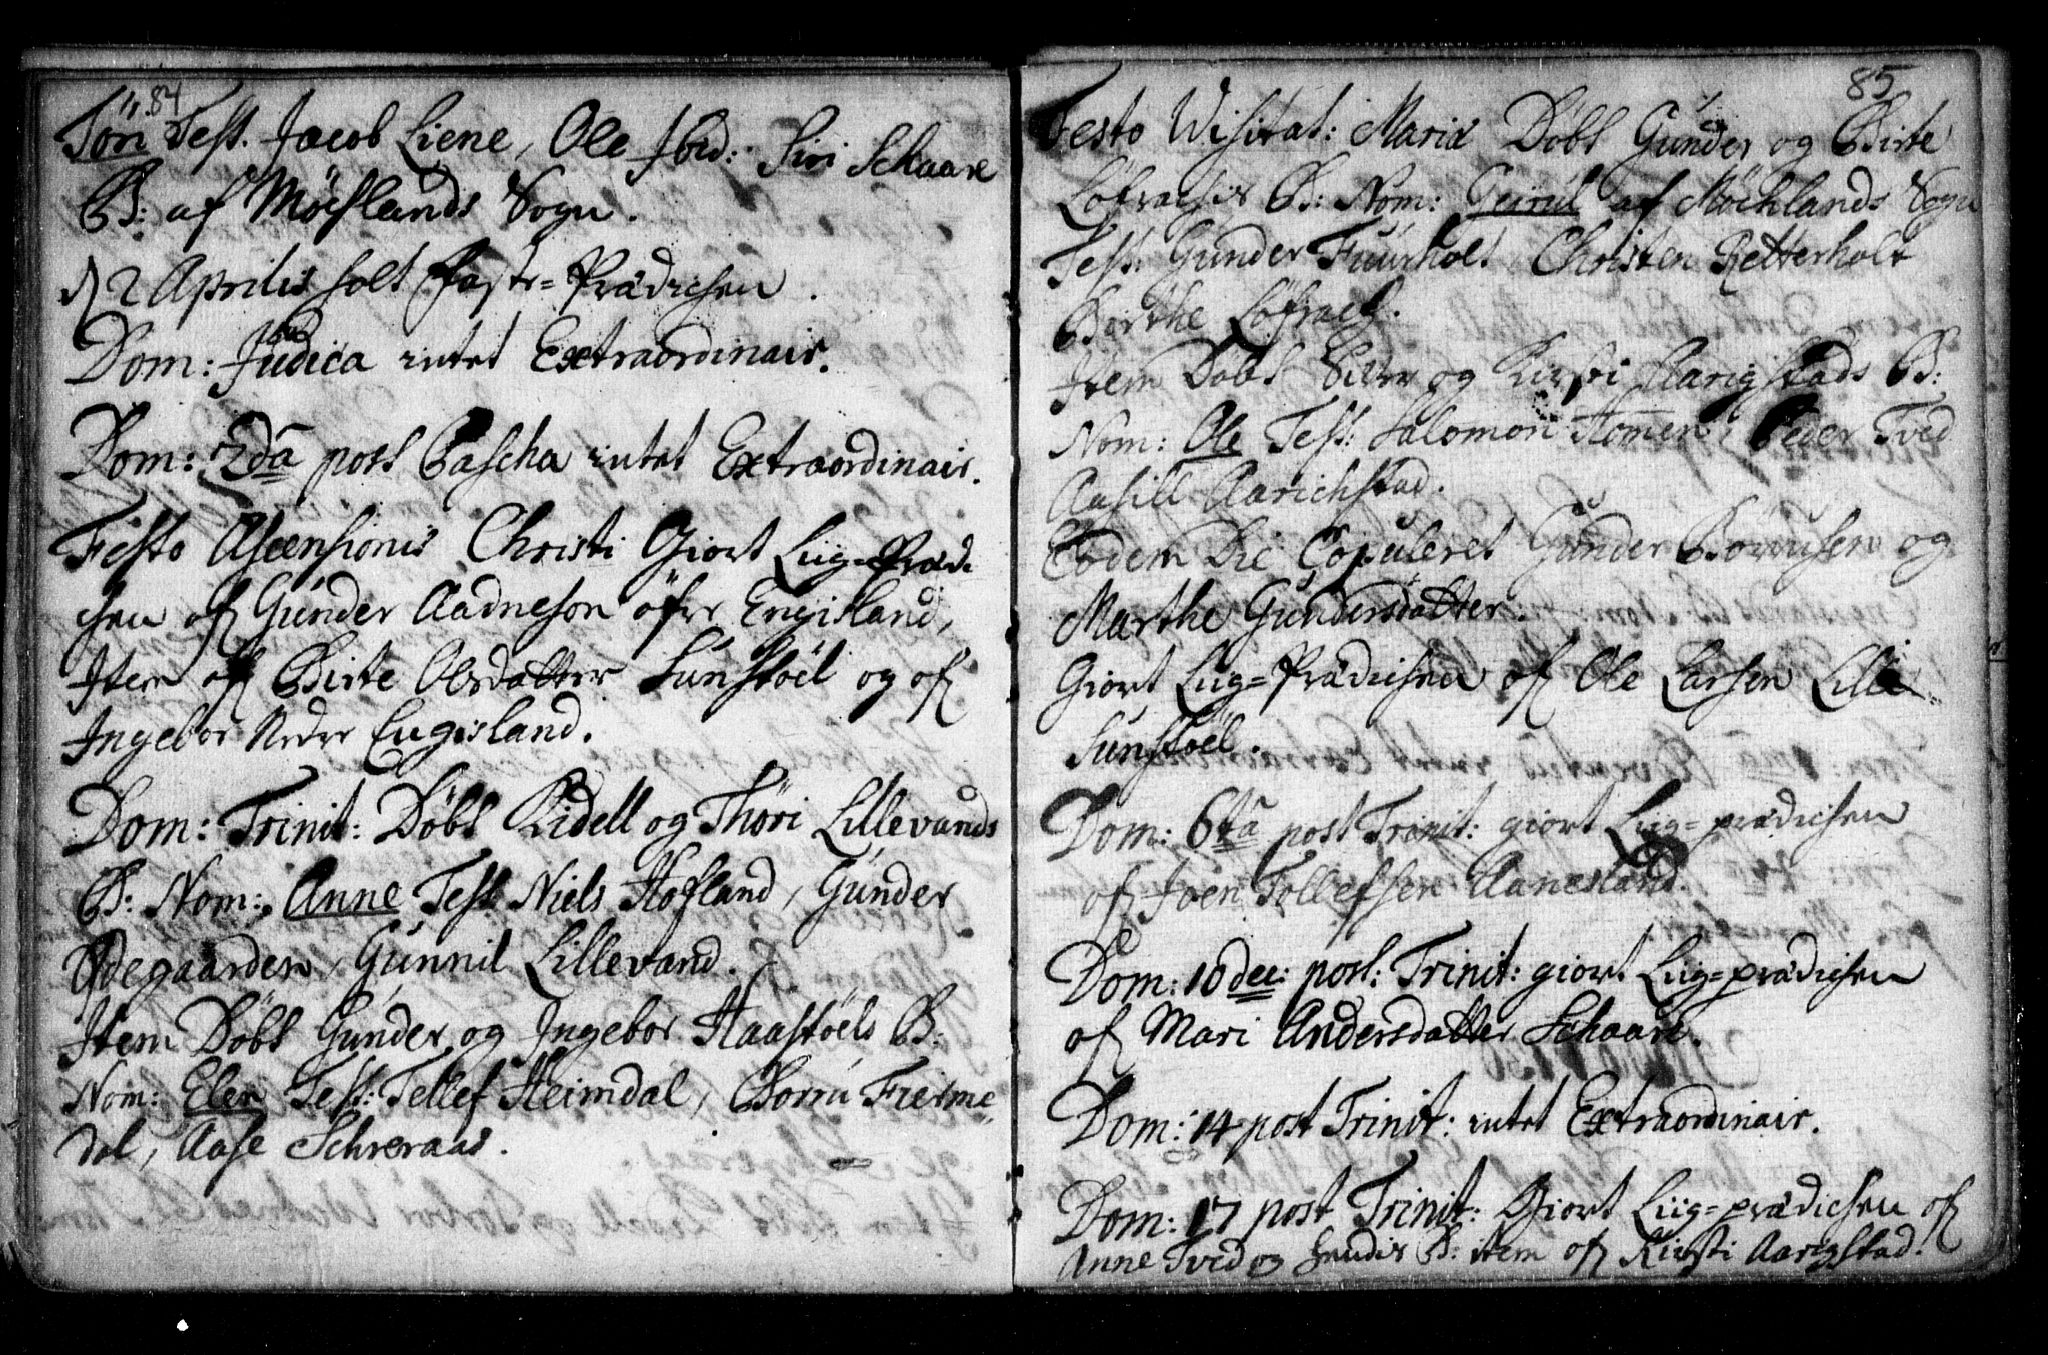 84
Töri Test. Jacob Liene, Ole Ibid: Siri Schaare
B: af Möchlands Sogn.
d 2 Aprilis holt Faste=Prædichen.
Dom: Judica intet Extraordinair.
Dom: 2da post Pascha intet Extraordinair.
Festo Ascensionis Christi Giort Liig=Prædi
chen of Gunder Aadneson öfre Engisland,
Item of Birte Olsdatter Sunstöel og of
Ingebor Neder Engisland.
Dom: Trinit: Döbt Lidell og Thöri Lillevands
B: Nom: Anne Test Niels Hofland, Gunder
Ødegaarden, Gunnil Lillevand.
Item Döbt Gunder og Ingebor Haastöels B:
Nom: Elen Test: Tellef Heimdal, Borru Fieme
dal, Aase Schreraas.
85
Festo Visitat: Mariæ Döbt Gunder og Birte
Löfrachs B: Nom: af Möchlands Sogn
Test: Gunder Fuurholt Christen Retterholt
Berthe Löfrach.
Item Döbt Siver og Kirsti Aarigstads B:
Nom: Ole Test: Salomon Homen, Peder Tved
Aasill Aarichstad.
Eodem Die Copuleret Gunder Börusen og
Marthe Gundersdatter.
Giort Liig=Prædichen of Ole Larsen Lille
Sunstöel.
Dom: 6ta post Trinit: giort Liig=prædichen
of Joen Tollefsen Aanesland.
Dom: 10dec: post: Trinit: giort Liig=prædichen
of Mari Andersdatter Schaare.
Dom: 14 post Trinit: intet Extraordinair.
Dom: 17 post Trinit: Giort Liig=prædichen of
Anne Tved og hendis B: item of Kirsti Aarigstad.